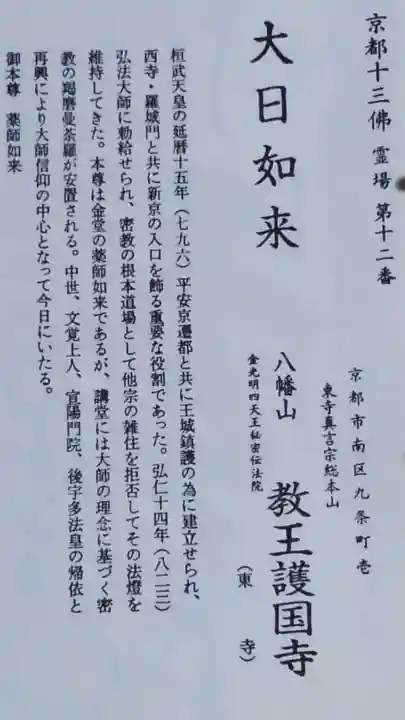 京都十三佛霊場 第十二番
大日如来
京都市南区九条町壱
東寺真言宗総本山
八幡山 教王護国寺
(東寺)
金光明四天王秘密伝法院
桓武天皇の延暦十五年(七九六)平安京遷都と共に王城鎮護の為に建立せられ、
西寺・羅城門と共に新京の入口を飾る重要な役割であった。弘仁十四年(八二三)
弘法大師に勅給せられ、密教の根本道場として他宗の雑住を拒否してその法燈を
維持してきた。本尊は金堂の薬師如来であるが、講堂には大師の理念に基づく密
教の羯磨曼荼羅が安置される。中世、文覚上人、宣陽門院、後宇多法皇の帰依と
再興により大師信仰の中心となって今日にいたる。
御本尊 薬師如来